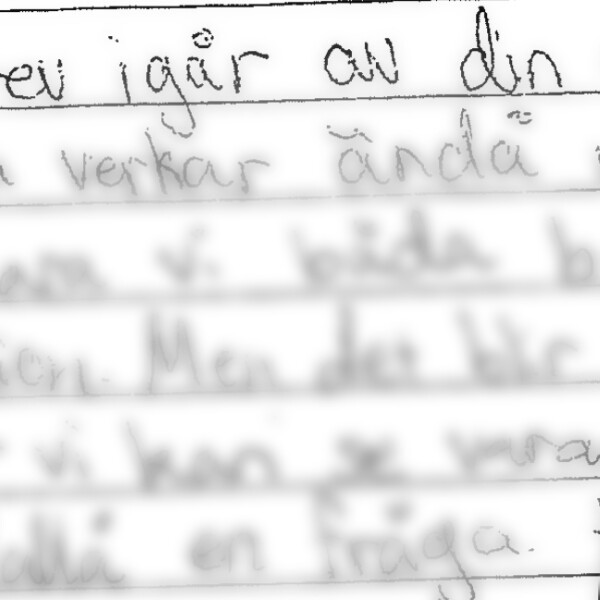 igår av din
verkar ändå
vi båda
Men det blir
vi kan se
en fråga.